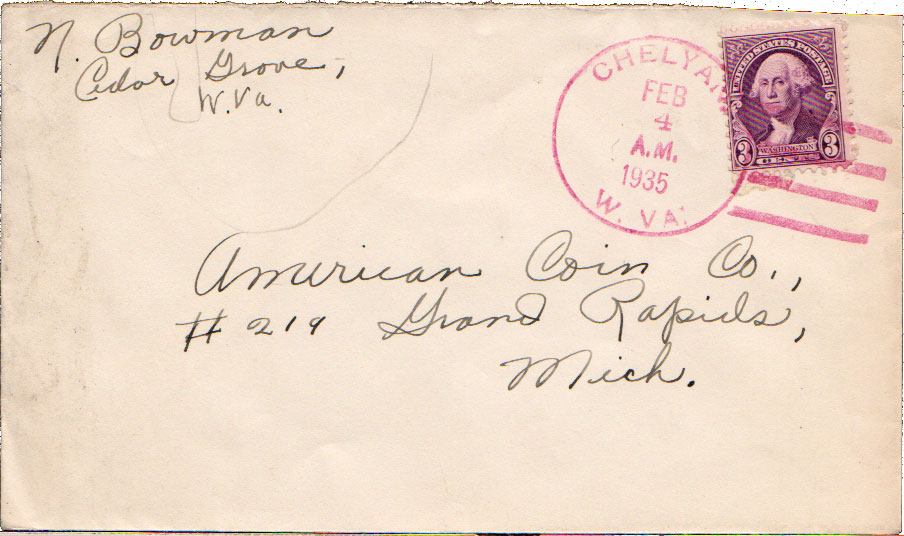 N. Bowman
Cedar Grove,
W. Va.
CHELYAN
FEB
4
A.M.
1935
W. VA.
UNITED STATES POSTAGE
3 WASHINGTON 3
CENTS
American Coin Co.,
# 219 Grand Rapids,
Mich.